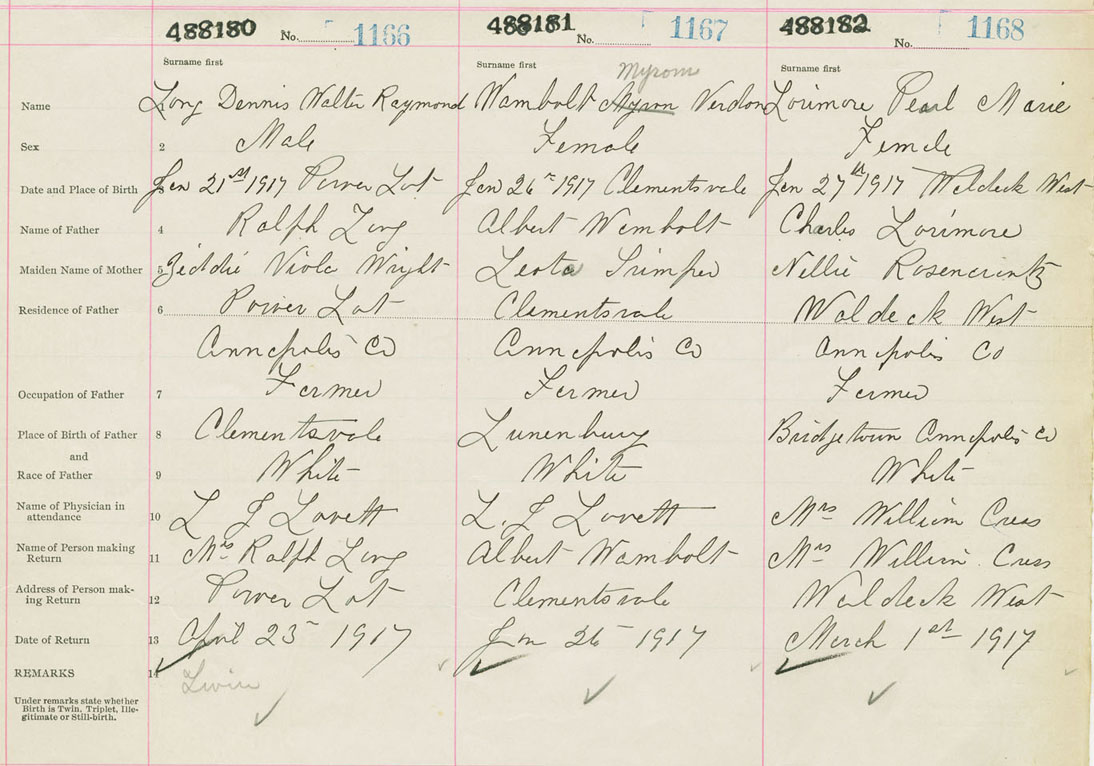 488180 No. 1166 488181 No. 1167 488182 No. 1168
Surname first Surname first Surname first
Myrom
Name 1 Long Dennis Walter Raymond Wambolt Myron Verdon Lorimore Pearl Marie
Sex 2 Male Female Female
Date and Place of Birth 3 Jan 21st 1917 Power Lot Jan 26th 1917 Clementsvale Jan 27th 1917 Waldeck West
Name of Father 4 Ralph Long Albert Wambolt Charles Lorimore
Maiden Name of Mother 5 Zeddie Viola Wright Leota Trimper Nellie Rosencrantz
Residence of Father 6 Power Lot Clementsvale Waldeck West
Annapolis Co Annapolis Co Annapolis Co
Occupation of Father 7 Farmer Farmer Farmer
Place of Birth of Father 8 Clementsvale Lunenburg Bridgetown Annapolis Co
and
Race of Father 9 White White White
Name of Physician in
attendance 10 L J Lovett L. J Lovett Mrs William Cress
Name of Person making
Return 11 Mrs Ralph Long Albert Wambolt Mrs William Cress
Address of Person mak-
ing Return 12 Power Lot Clementsvale Waldeck West
Date of Return 13 April 23 1917 Jan 26 1917 March 1st 1917
REMARKS 14
Under remarks state whether
Birth is Twin, Triplet, Ille-
gitimate or Still-birth.